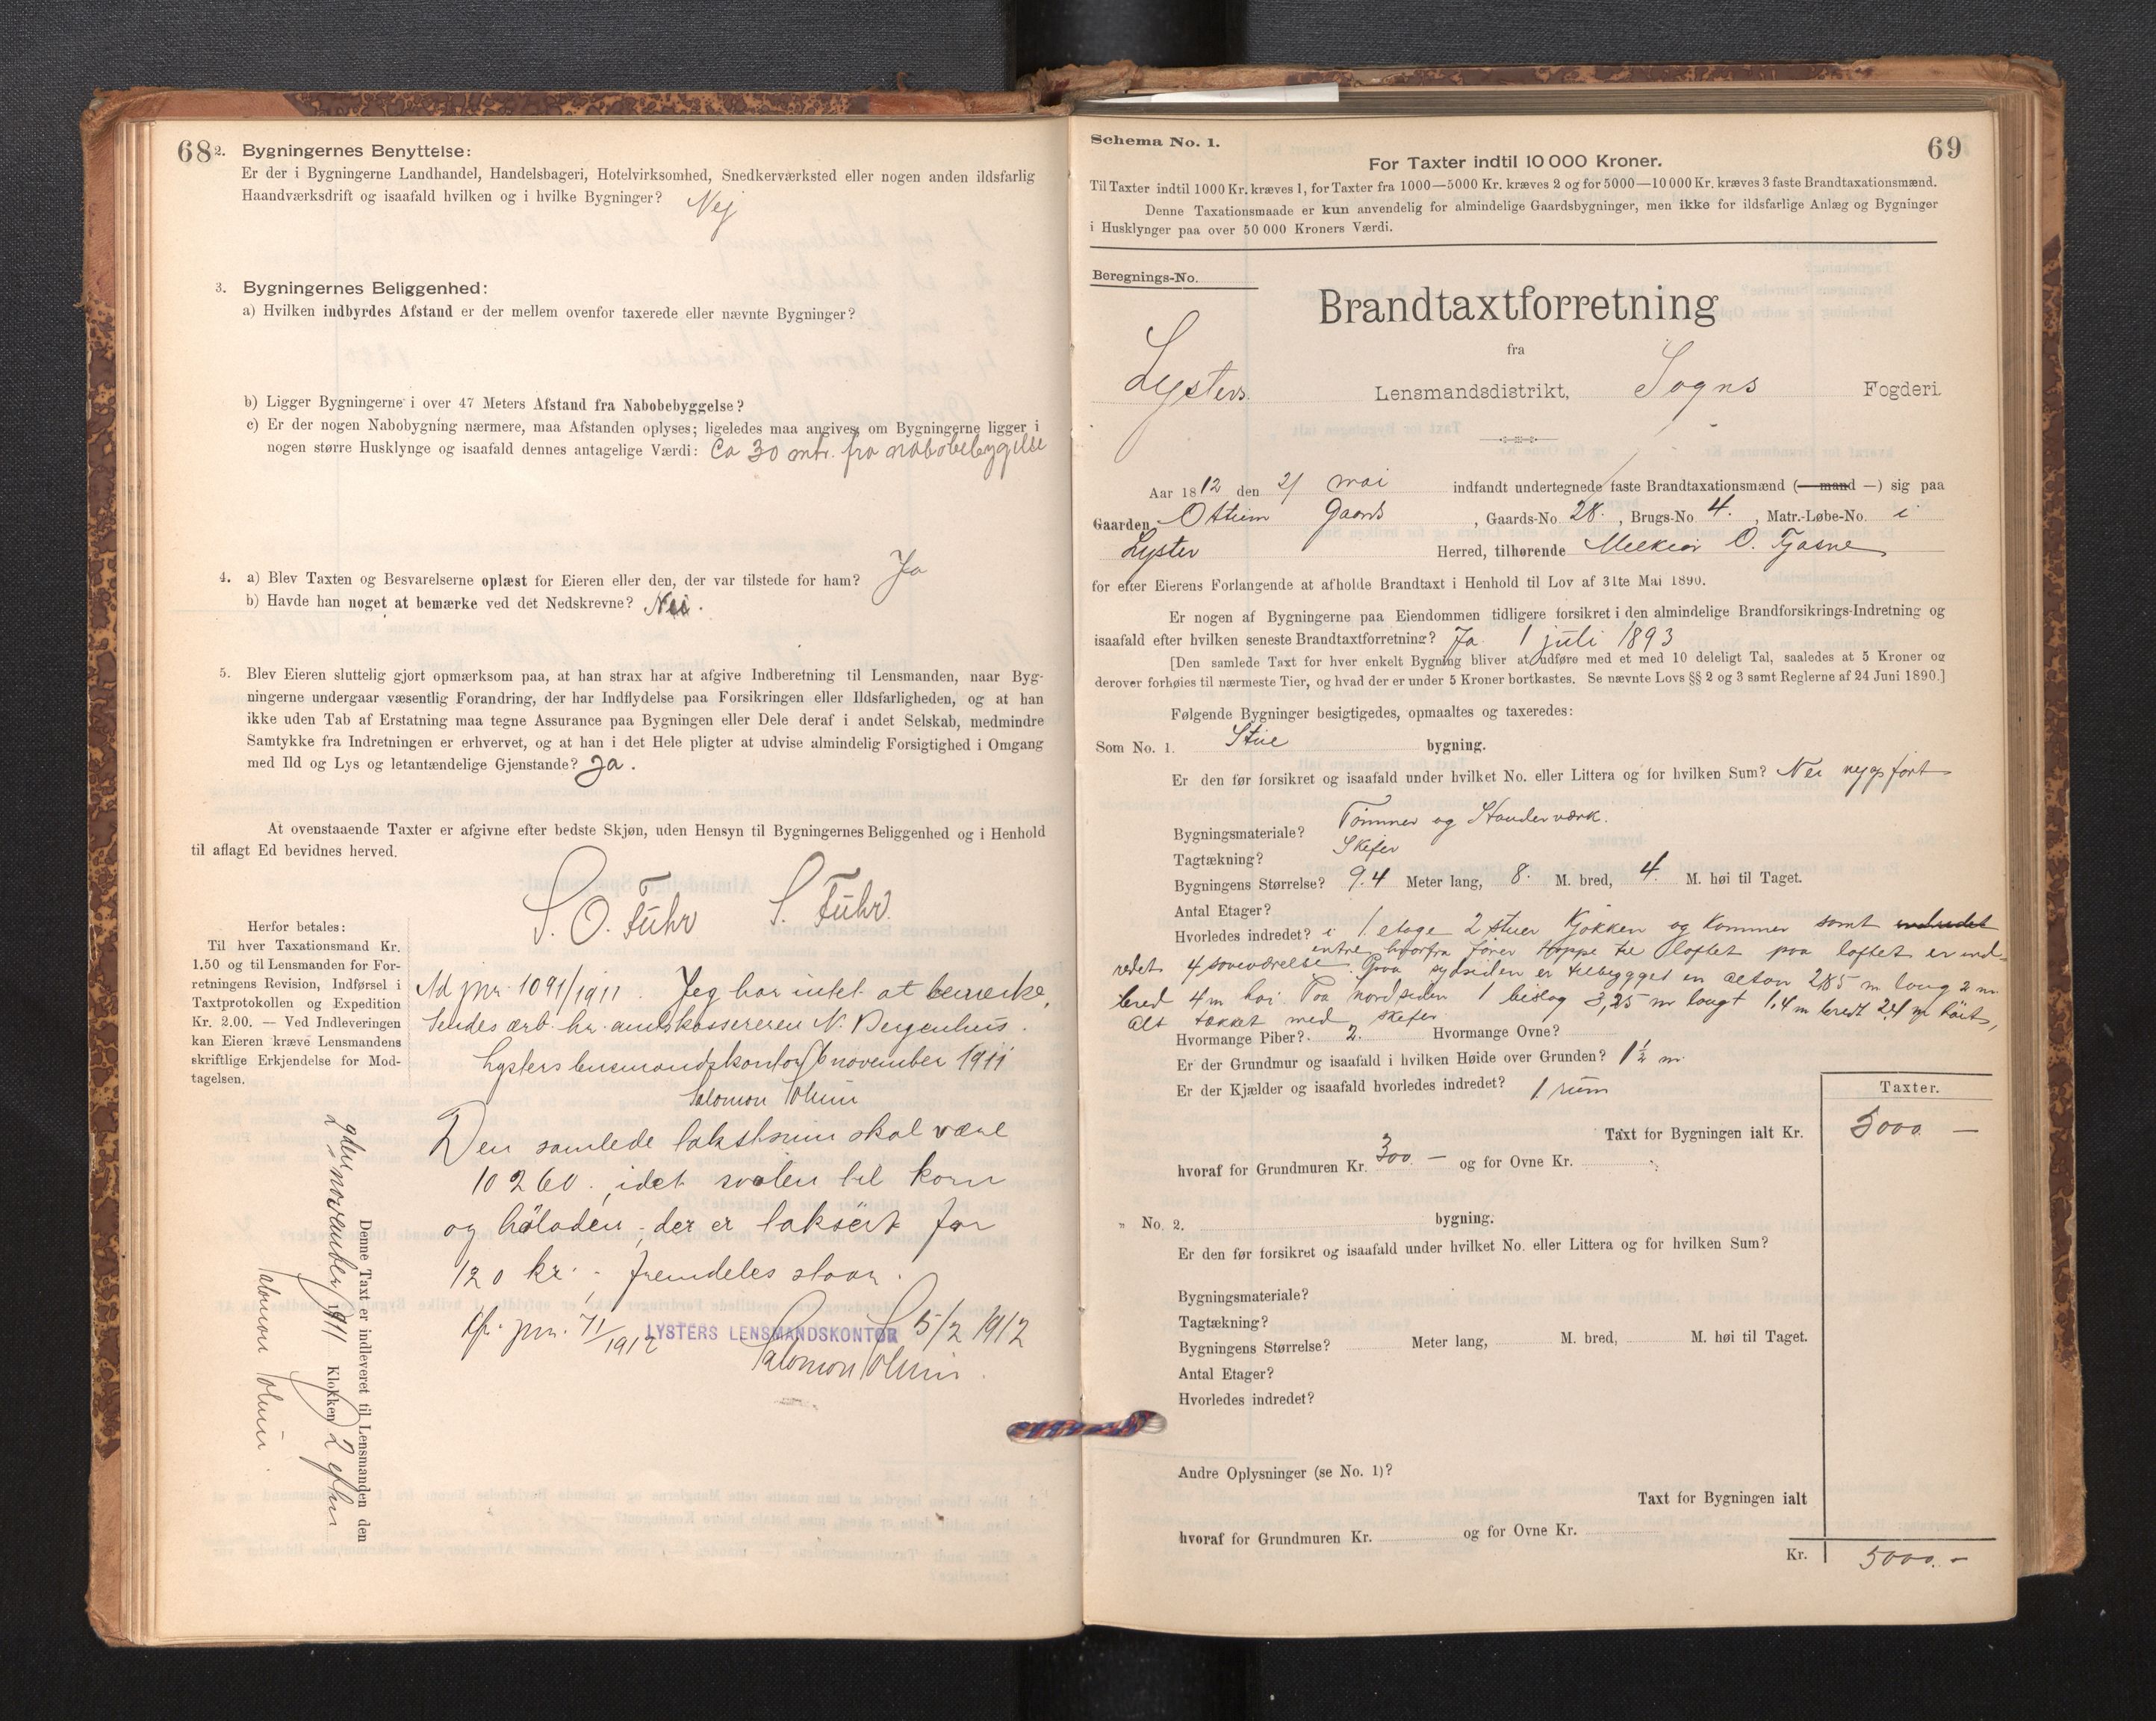 68
2. Bygningernes Benyttelse:
Er der i Bygningerne Landhandel, Handelsbageri, Hotelvirksomhed, Snedkerværksted eller nogen anden ildsfarlig
Haandværksdrift og isaafald hvilken og i hvilke Bygninger? Nej
3. Bygningernes Beliggenhed:
a) Hvilken indbyrdes Afstand er der mellem ovenfor taxerede eller nævnte Bygninger?
b) Ligger Bygningerne i over 47 Meters Afstand fra Nabobebyggelse?
c) Er der nogen Nabobygning nærmere, maa Afstanden oplyses; ligeledes maa angives om Bygningerne ligger i
nogen større Husklynge og isaafald dennes antagelige Værdi: Ca 30 mtr. fra nabobebygelse
4. a) Blev Taxten og Besvarelserne oplæst for Eieren eller den, der var tilstede for ham? Ja
b) Havde han noget at bemærke ved det Nedskrevne? Nei.
5. Blev Eieren sluttelig gjort opmærksom paa, at han strax har at afgive Indberetning til Lensmanden, naar Byg-
ningerne undergaar væsentlig Forandring, der har Indflydelse paa Forsikringen eller Ildsfarligheden, og at han
ikke uden Tab af Erstatning maa tegne Assurance paa Bygningen eller Dele deraf i andet Selskab, medmindre
Samtykke fra Indretningen er erhvervet, og at han i det Hele pligter at udvise almindelig Forsigtighed i Omgang
med Ild og Lys og letantændelige Gjenstande? Ja.
At ovenstaaende Taxter er afgivne efter bedste Skjøn, uden Hensyn til Bygningernes Beliggenhed og i Henhold
til aflagt Ed bevidnes herved.
S. O. Fuhr S. Fuhr.
Herfor betales:
Til hver Taxationsmand Kr.
1.50 og til Lensmanden for For-
retningens Revision, Indførsel i
Taxtprotokollen og Expedition
Kr. 2.00. — Ved Indleveringen
kan Eieren kræve Lensmandens
skriftlige Erkjendelse for Mod-
tagelsen.
Ad jnr. 1091/1911. Jeg har intet at bemerke,
Sendes ærb. hr. amtskassereren N. Bergenhus.
Lysters lensmandskontor 6 november 1911
Salomon
Den samlede takstsum skal være
10260., idet svalen til korn
og høladen, der er taksert for
120 kr., fremdeles staar.
Kfr. jnr. 71/1912 LYSTERS LENSMANDSKONTOR 5/2 1912
Salomon
Denne Taxt er indleveret til Lensmanden den
november 1911 Klokken 2 efterm
Salomon
69
Schema No. 1.
For Taxter indtil 10 000 Kroner.
Til Taxter indtil 1000 Kr. kræves 1, for Taxter fra 1000—5000 Kr. kræves 2 og for 5000—10 000 Kr. kræves 3 faste Brandtaxationsmænd.
Denne Taxationsmaade er kun anvendelig for almindelige Gaardsbygninger, men ikke for ildsfarlige Anlæg og Bygninger
i Husklynger paa over 50 000 Kroners Værdi.
Beregnings-No.
Brandtaxtforretning
fra
Lysters Lensmandsdistrikt, Sogns Fogderi.
Aar 1812 den 21 mai indfandt undertegnede faste Brandtaxationsmænd (— mand —) sig paa
Gaarden Ottum Gaards, Gaards-No. 28., Brugs-No. 4., Matr.-Løbe-No. i
Lyster Herred, tilhørende Melkior O. Fjøsne
for efter Eierens Forlangende at afholde Brandtaxt i Henhold til Lov af 31te Mai 1890.
Er nogen af Bygningerne paa Eiendommen tidligere forsikret i den almindelige Brandforsikrings-Indretning og
isaafald efter hvilken seneste Brandtaxtforretning? Ja 1 juli 1893
[Den samlede Taxt for hver enkelt Bygning bliver at udføre med et med 10 deleligt Tal, saaledes at 5 Kroner og
derover forhøies til nærmeste Tier, og hvad der er under 5 Kroner bortkastes. Se nævnte Lovs §§ 2 og 3 samt Reglerne af 24 Juni 1890.]
Følgende Bygninger besigtigedes, opmaaltes og taxeredes:
Som No. 1. Stue bygning.
Er den før forsikret og isaafald under hvilket No. eller Littera og for hvilken Sum? Nei nyopført
Bygningsmateriale? Tømmer og Standerværk.
Tagtækning? Skifer
Bygningens Størrelse? 9.4 Meter lang, 8. M. bred, 4. M. høi til Taget.
Antal Etager?
Hvorledes indredet? i 1 etage 2 stuer Kjøkken og Kammer samt
entre hvorfra fører trappe til loftet paa loftet er ind-
redet 4 soveværelse. Paa sydsiden er tilbygget en altan 2,85 m lang 2 m
bred 4 m høi. Paa nordsiden 1 bislag 3,25 m langt 1,4 m bredt 2,4 m høit,
Alt tækket med skifer
Hvormange Piber? 2. Hvormange Ovne?
Er der Grundmur og isaafald i hvilken Høide over Grunden? 1½ m.
Er der Kjælder og isaafald hvorledes indredet? 1 rum
Taxter.
Taxt for Bygningen ialt Kr. 5000 —
hvoraf for Grundmuren Kr. 300 — og for Ovne Kr.
" No. 2. bygning.
Er den før forsikret og isaafald under hvilket No. eller Littera og for hvilken Sum?
Bygningsmateriale?
Tagtækning?
Bygningens Størrelse? Meter lang, M. bred, M. høi til Taget.
Antal Etager?
Hvorledes indredet?
Andre Oplysninger (se No. 1)?
Taxt for Bygningen ialt
hvoraf for Grundmuren Kr. og for Ovne Kr.
Kr. 5000.—